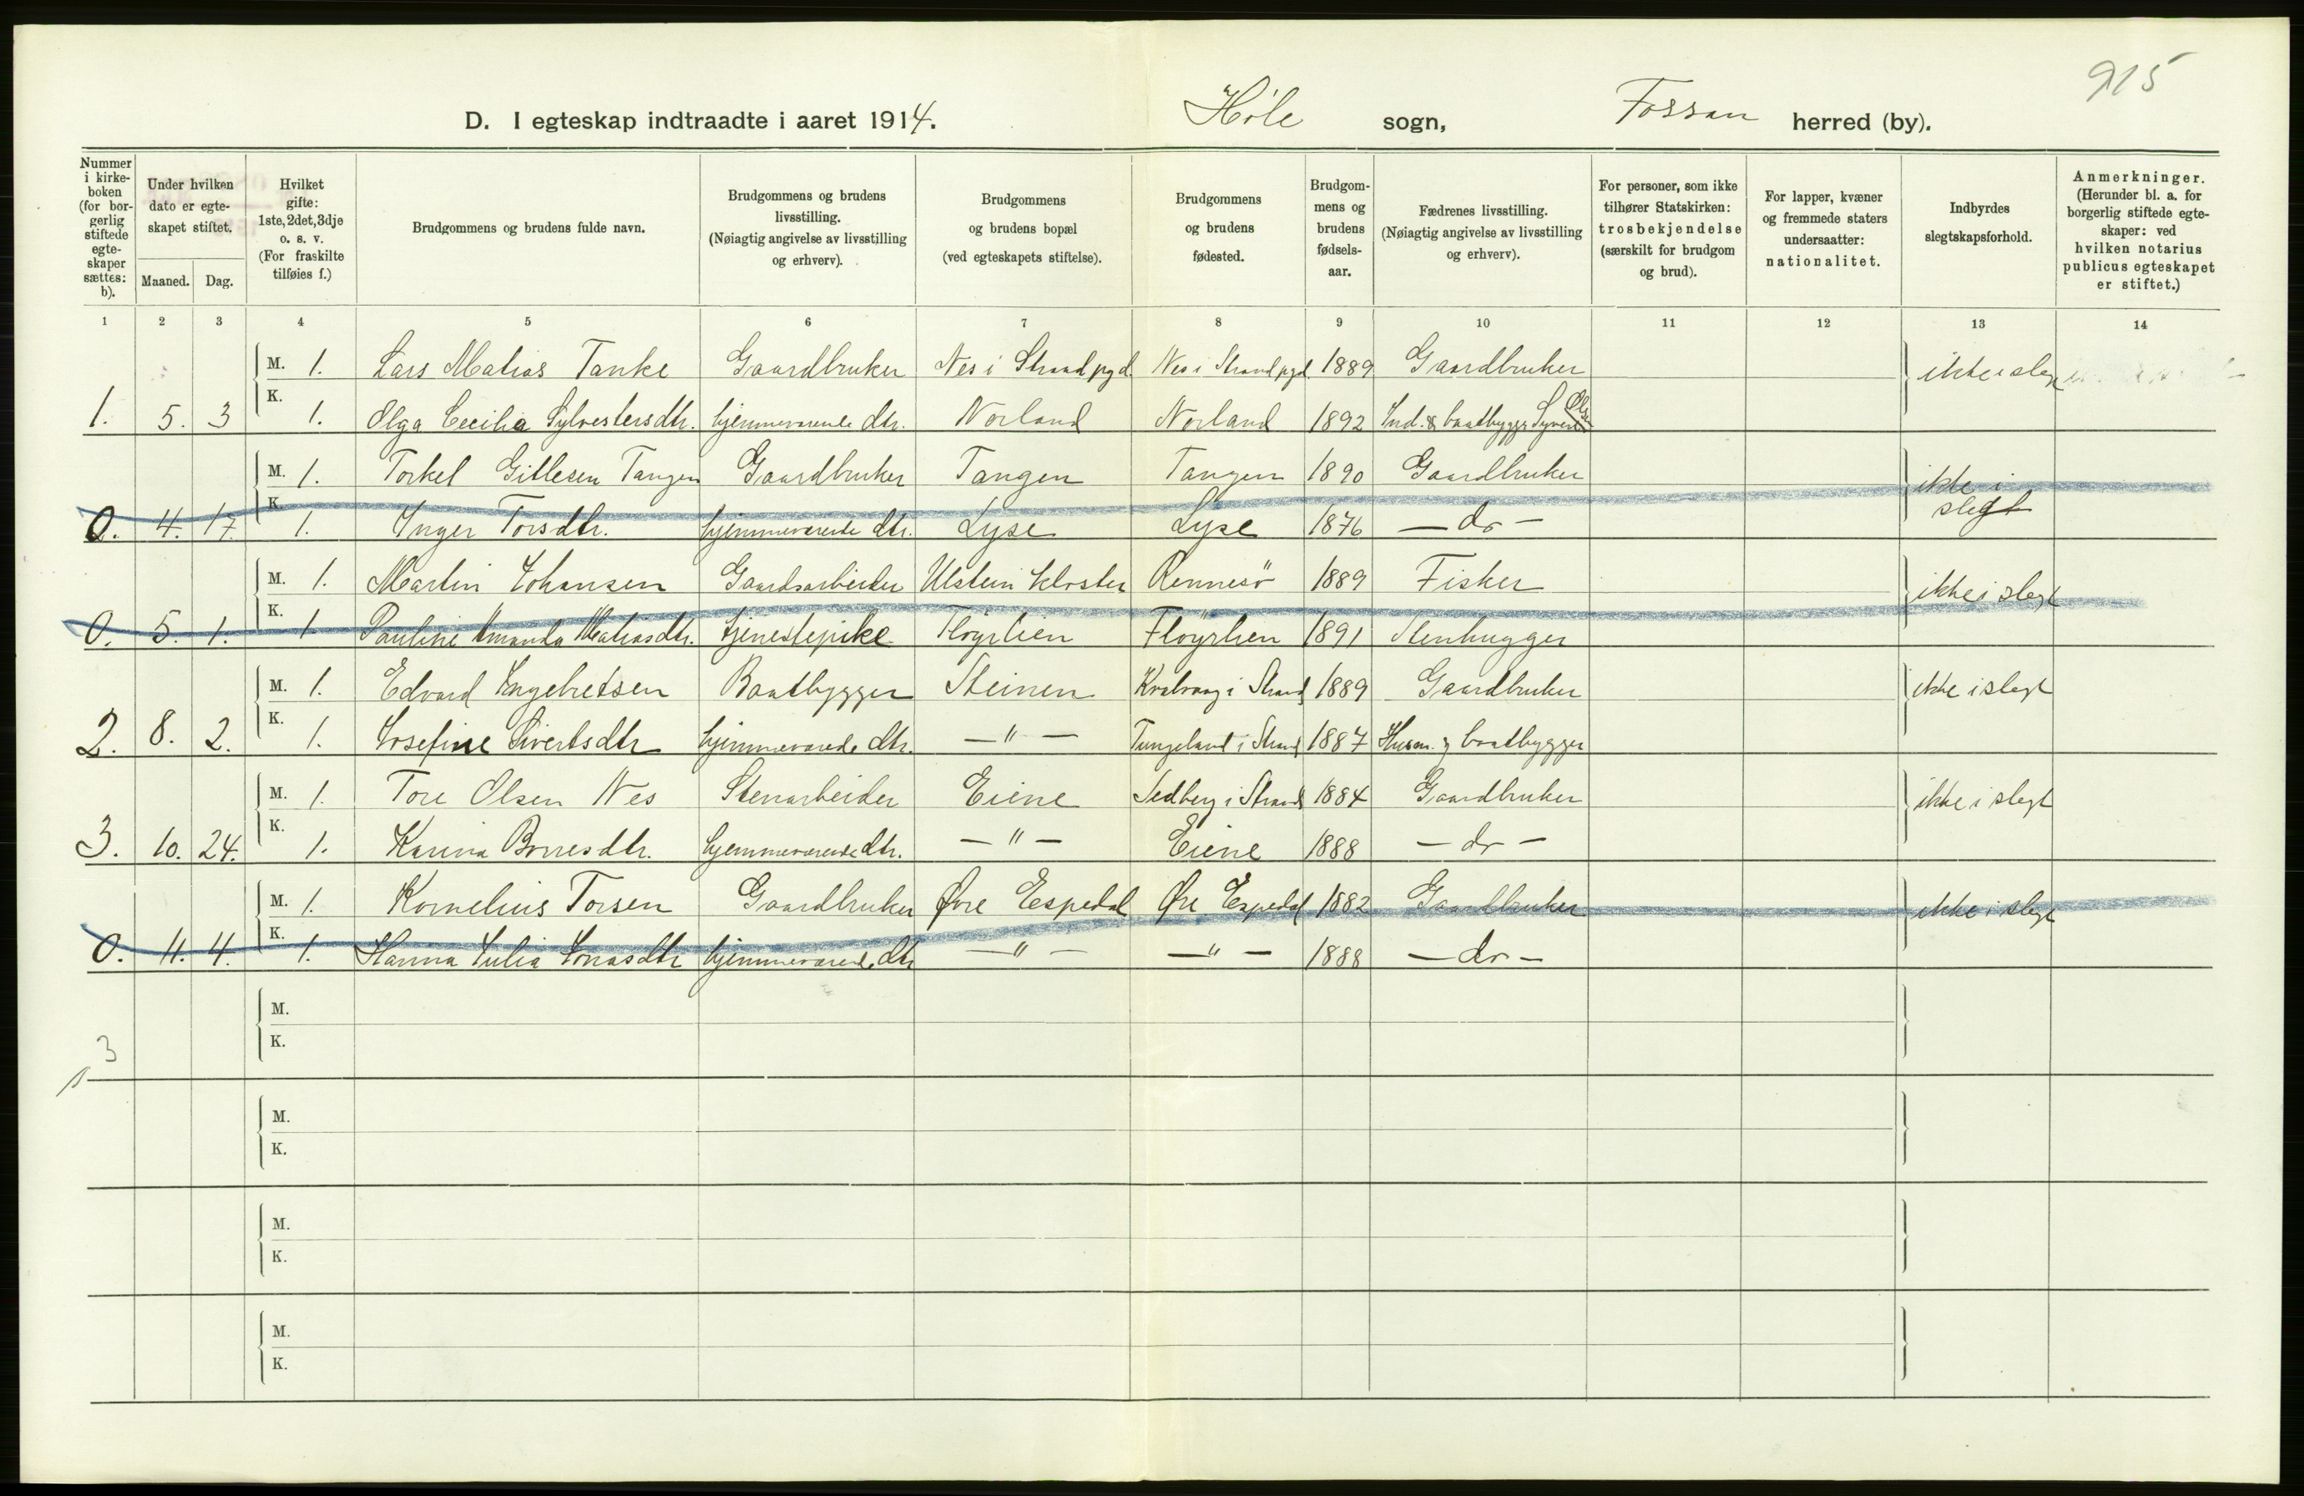 915
D. I egteskap indtraadte i aaret 1914. Høle sogn, Fossan herred (by).
Nummer i kirkeboken (for borgerlig stiftede egteskaper sættes: b).
Under hvilken dato er egteskapet stiftet.
Maaned. Dag.
Hvilket gifte: 1ste, 2det, 3dje o. s. v. (For fraskilte tilføies f.)
Brudgommens og brudens fulde navn.
Brudgommens og brudens livsstilling. (Nøiagtig angivelse av livsstilling og erhverv).
Brudgommens og brudens bopæl (ved egteskapets stiftelse).
Brudgommens og brudens fødested.
Brudgommens og brudens fødselsaar.
Fædrenes livsstilling. (Nøiagtig angivelse av livsstilling og erhverv).
For personer, som ikke tilhører Statskirken: trosbekjendelse (særskilt for brudgom og brud).
For lapper, kvæner og fremmede staters undersaatter: nationalitet.
Indbyrdes slegtskapsforhold.
Anmerkninger. (Herunder bl. a. for borgerlig stiftede egteskaper: ved hvilken notarius publicus egteskapet er stiftet.)
1 2 3 4 5 6 7 8 9 10 11 12 13 14
M. 1. Lars Matias Tanke Gaardbruker Nes i Strand pgd. Nes i Strand pgd. 1889 Gaardbruker ikke i slegt
1. 5. 3 K. 1. Olga Cecilia Sylvestersdtr. hjemmeværende dtr. Norland Norland 1892 Ind. & baatbygger Olsen
M. 1. Torkel Gitlesen Tangen Gaardbruker Tangen Tangen 1890 Gaardbruker ikke i slegt
0. 4. 17. K. 1. Inger Torsdtr. hjemmeværende dtr. Lyse Lyse 1876 — do —
M. 1. Martin Johansen Gaardsarbeider Utstein Kloster Rennesö 1889 Fisker ikke i slegt
0. 5. 1. K. 1 Pauline Amanda Matiasdtr. tjenestepike Fløyrlien Fløyrlien 1891 Stenhugger
M. 1. Edvard Ingebretsen Baatbygger Steinen Kvalvaag i Strand 1889 Gaardbruker ikke i slegt
2. 8. 2. K. 1. Josefine Sivertsdtr hjemmeværende dtr. — " — Tungeland i Strand 1887 Husm. og baatbygger
M. 1. Tore Olsen Nes Stenarbeider Eiene Sedberg i Strand 1884 Gaardbruker ikke i slegt
3. 10. 24. K. 1. Karina Borresdtr. hjemmeværende dtr. — " — Eiene 1888 — do —
M. 1. Kornelius Torsen Gaardbruker Øvre Espedal Øvre Espedal 1882 Gaardbruker ikke i slegt
0. 4. 4. K. 1. Hanna Julia Jonasdtr hjemmeværende dtr — " — — " — 1888 — do —
M.
K.
3
M.
K.
M.
K.
M.
K.